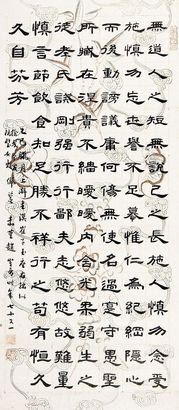 無道人之短無說己之長施人慎勿念受
施慎勿忘世譽不足慕惟仁為紀綱隱心
而後動謗議庸何傷無使名過實守愚聖
所臧在涅貴不緇曖曖內含光柔弱生之
徒老氏誡剛強行行鄙夫志悠悠故難量
慎言節飲食知足勝不祥行之苟有恆久
久自芬芳